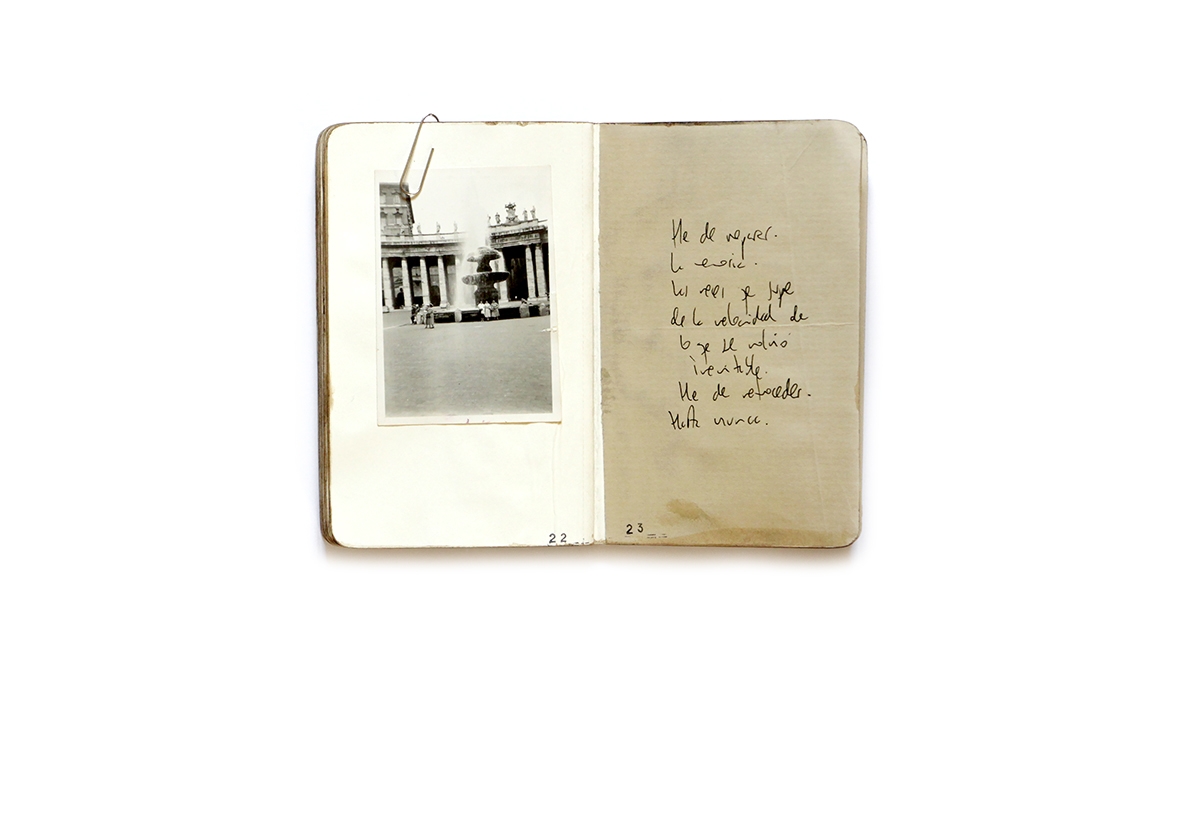 He de regresar.
La
Las veces que
de la velocidad de
lo que se volvió
inevitable.
He de retroceder.
Hasta nunca.
22
23